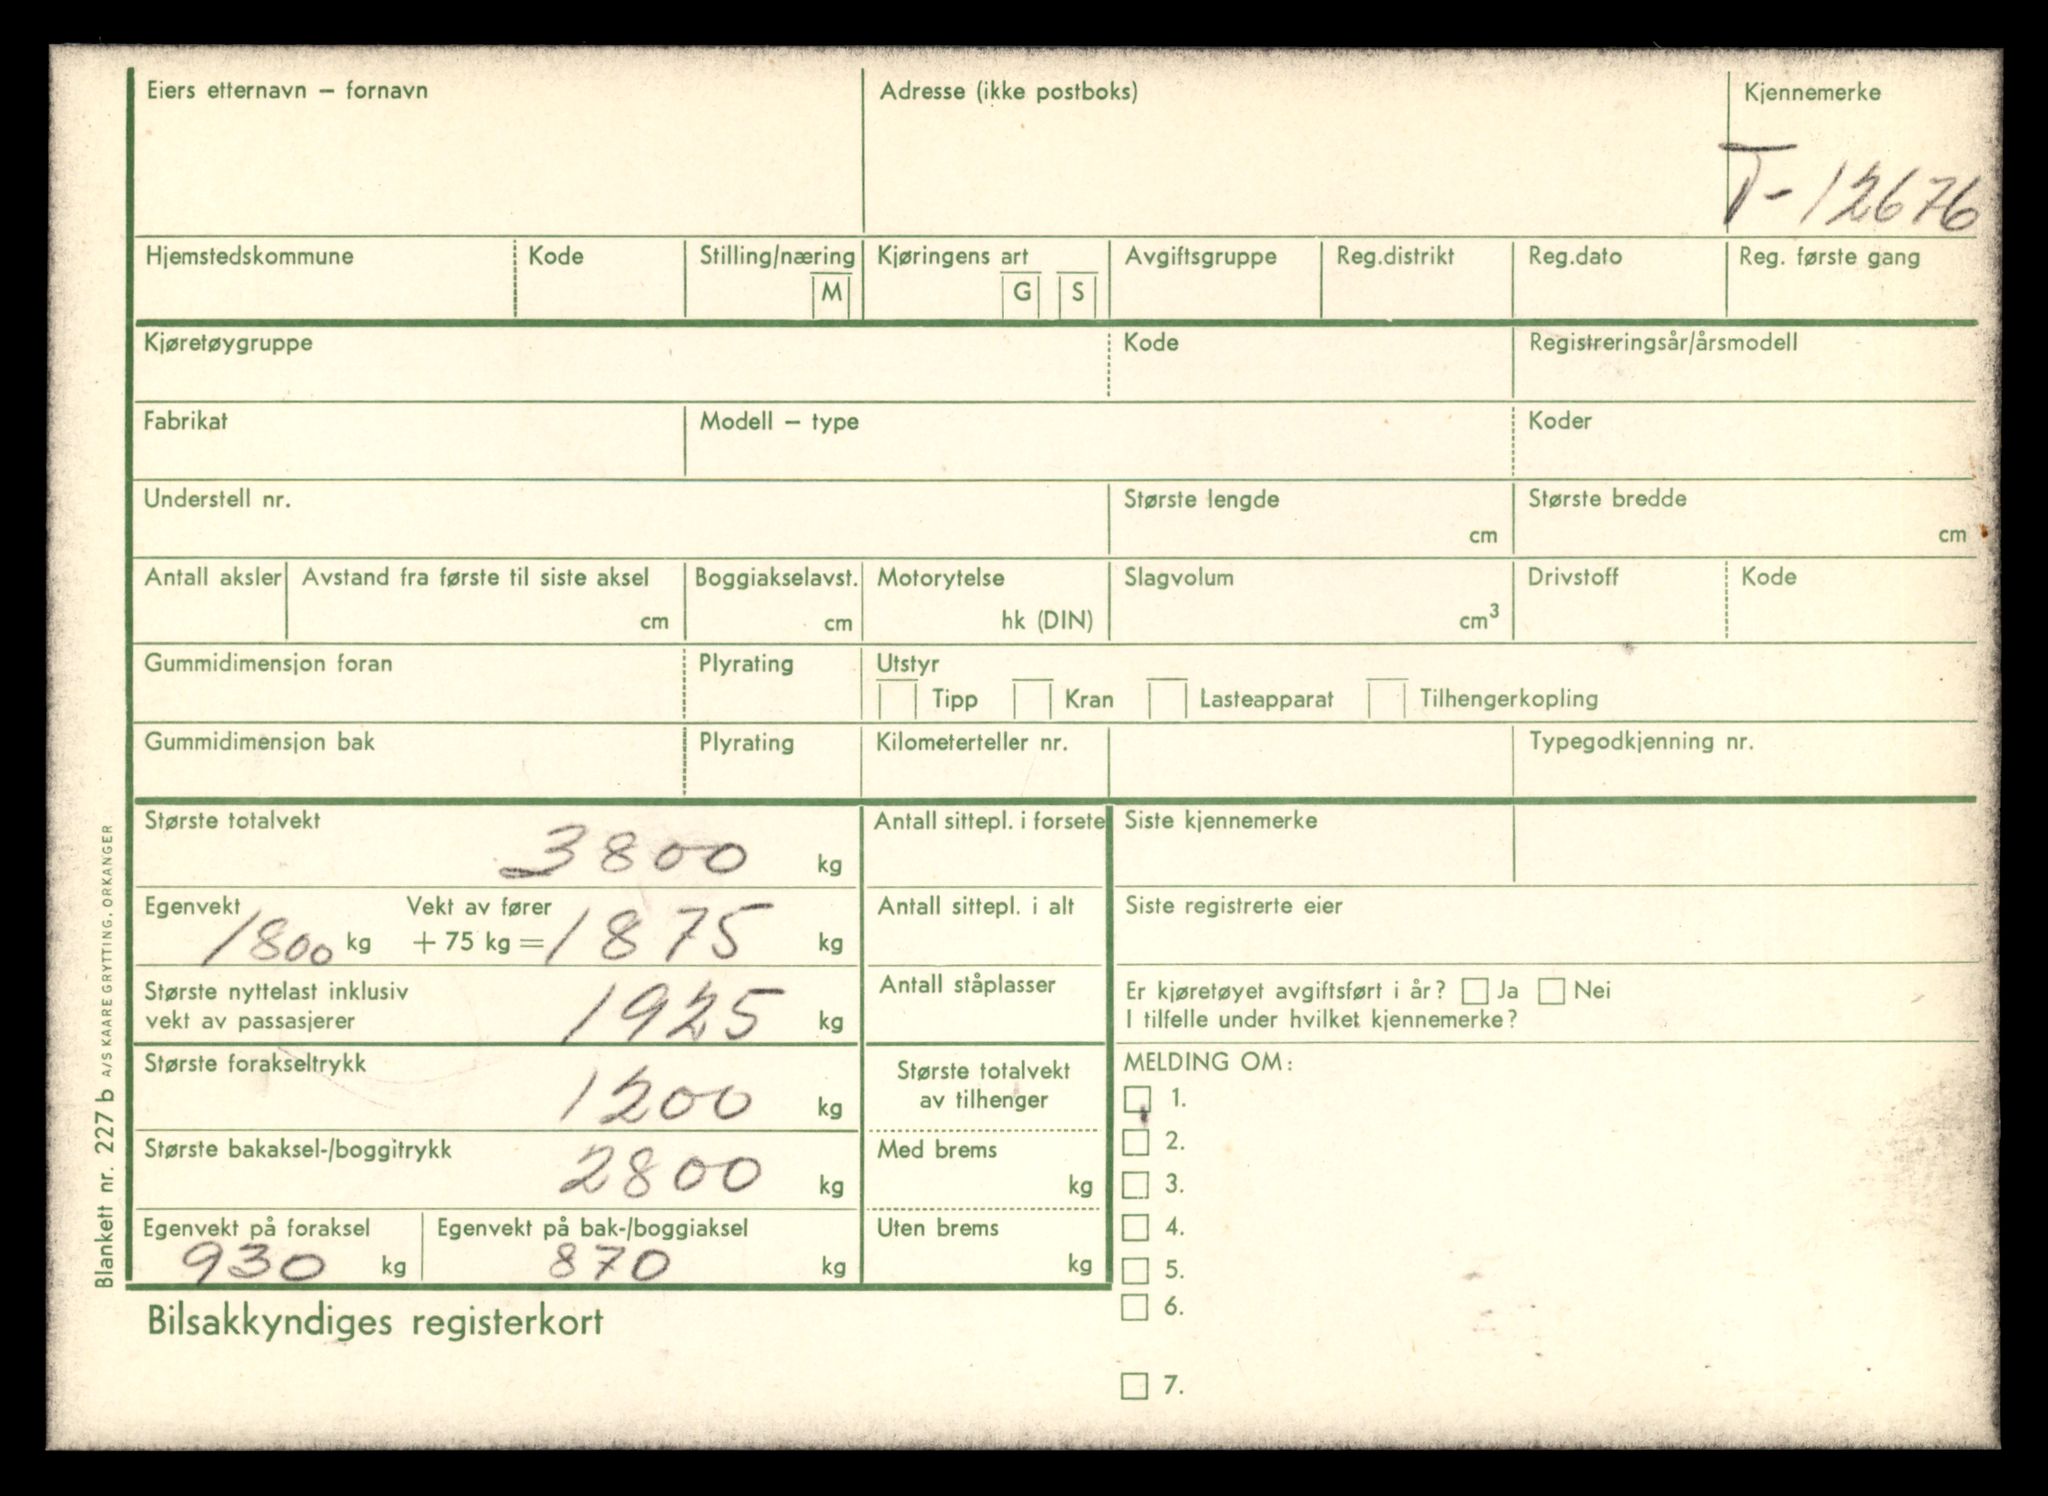 Eiers etternavn – fornavn
Adresse (ikke postboks)
Kjennemerke
T-12676
Hjemstedskommune
Kode
Stilling/næring
M
Kjøringens art
G
S
Avgiftsgruppe
Reg.distrikt
Reg.dato
Reg. første gang
Kjøretøygruppe
Kode
Registreringsår/årsmodell
Fabrikat
Modell – type
Koder
Understell nr.
Største lengde
cm
Største bredde
cm
Antall aksler
Avstand fra første til siste aksel
cm
Boggiakselavst.
cm
Motorytelse
hk (DIN)
Slagvolum
cm³
Drivstoff
Kode
Gummidimensjon foran
Plyrating
Utstyr
Tipp
Kran
Lasteapparat
Tilhengerkopling
Gummidimensjon bak
Plyrating
Kilometerteller nr.
Typegodkjenning nr.
Største totalvekt
3800 kg
Antall sittepl. i forsete
Siste kjennemerke
Egenvekt
1800 kg
Vekt av fører
+ 75 kg = 1875 kg
Antall sittepl. i alt
Siste registrerte eier
Største nyttelast inklusiv
vekt av passasjerer
1925 kg
Antall ståplasser
Er kjøretøyet avgiftsført i år? Ja Nei
I tilfelle under hvilket kjennemerke?
Største forakseltrykk
1200 kg
Største totalvekt
av tilhenger
MELDING OM:
1.
2.
3.
4.
5.
6.
7.
Største bakaksel-/boggitrykk
2800 kg
Med brems
kg
Egenvekt på foraksel
930 kg
Egenvekt på bak-/boggiaksel
870 kg
Uten brems
kg
Bilsakkyndiges registerkort
Blankett nr. 227 b A/S KAARE GRYTTING, ORKANGER